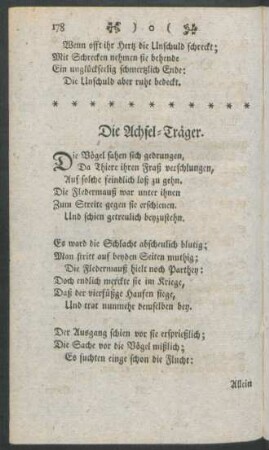 178 ❀ ) o ( ❀
Wenn offt ihr Hertz die Unschuld schreckt;
Mit Schrecken nehmen sie behende
Ein unglückseelig schmertzlich Ende:
Die Unschuld aber ruht bedeckt.
* * * * * * * * * * * *
Die Achsel-Träger.
Die Vögel sahen sich gedrungen,
Da Thiere ihren Fraß verschlungen,
Auf solche feindlich loß zu gehn.
Die Fledermauß war unter ihnen
Zum Streite gegen sie erschienen.
Und schien getreulich beyzustehn.
Es ward die Schlacht abscheulich blutig;
Man stritt auf beyden Seiten muthig;
Die Fledermauß hielt noch Parthey:
Doch endlich merckte sie im Kriege,
Daß der vierfüßge Haufen siege,
Und trat nunmehr demselben bey.
Der Ausgang schien vor sie ersprießlich;
Die Sache vor die Vögel mißlich;
Es suchten einge schon die Flucht:
Allein